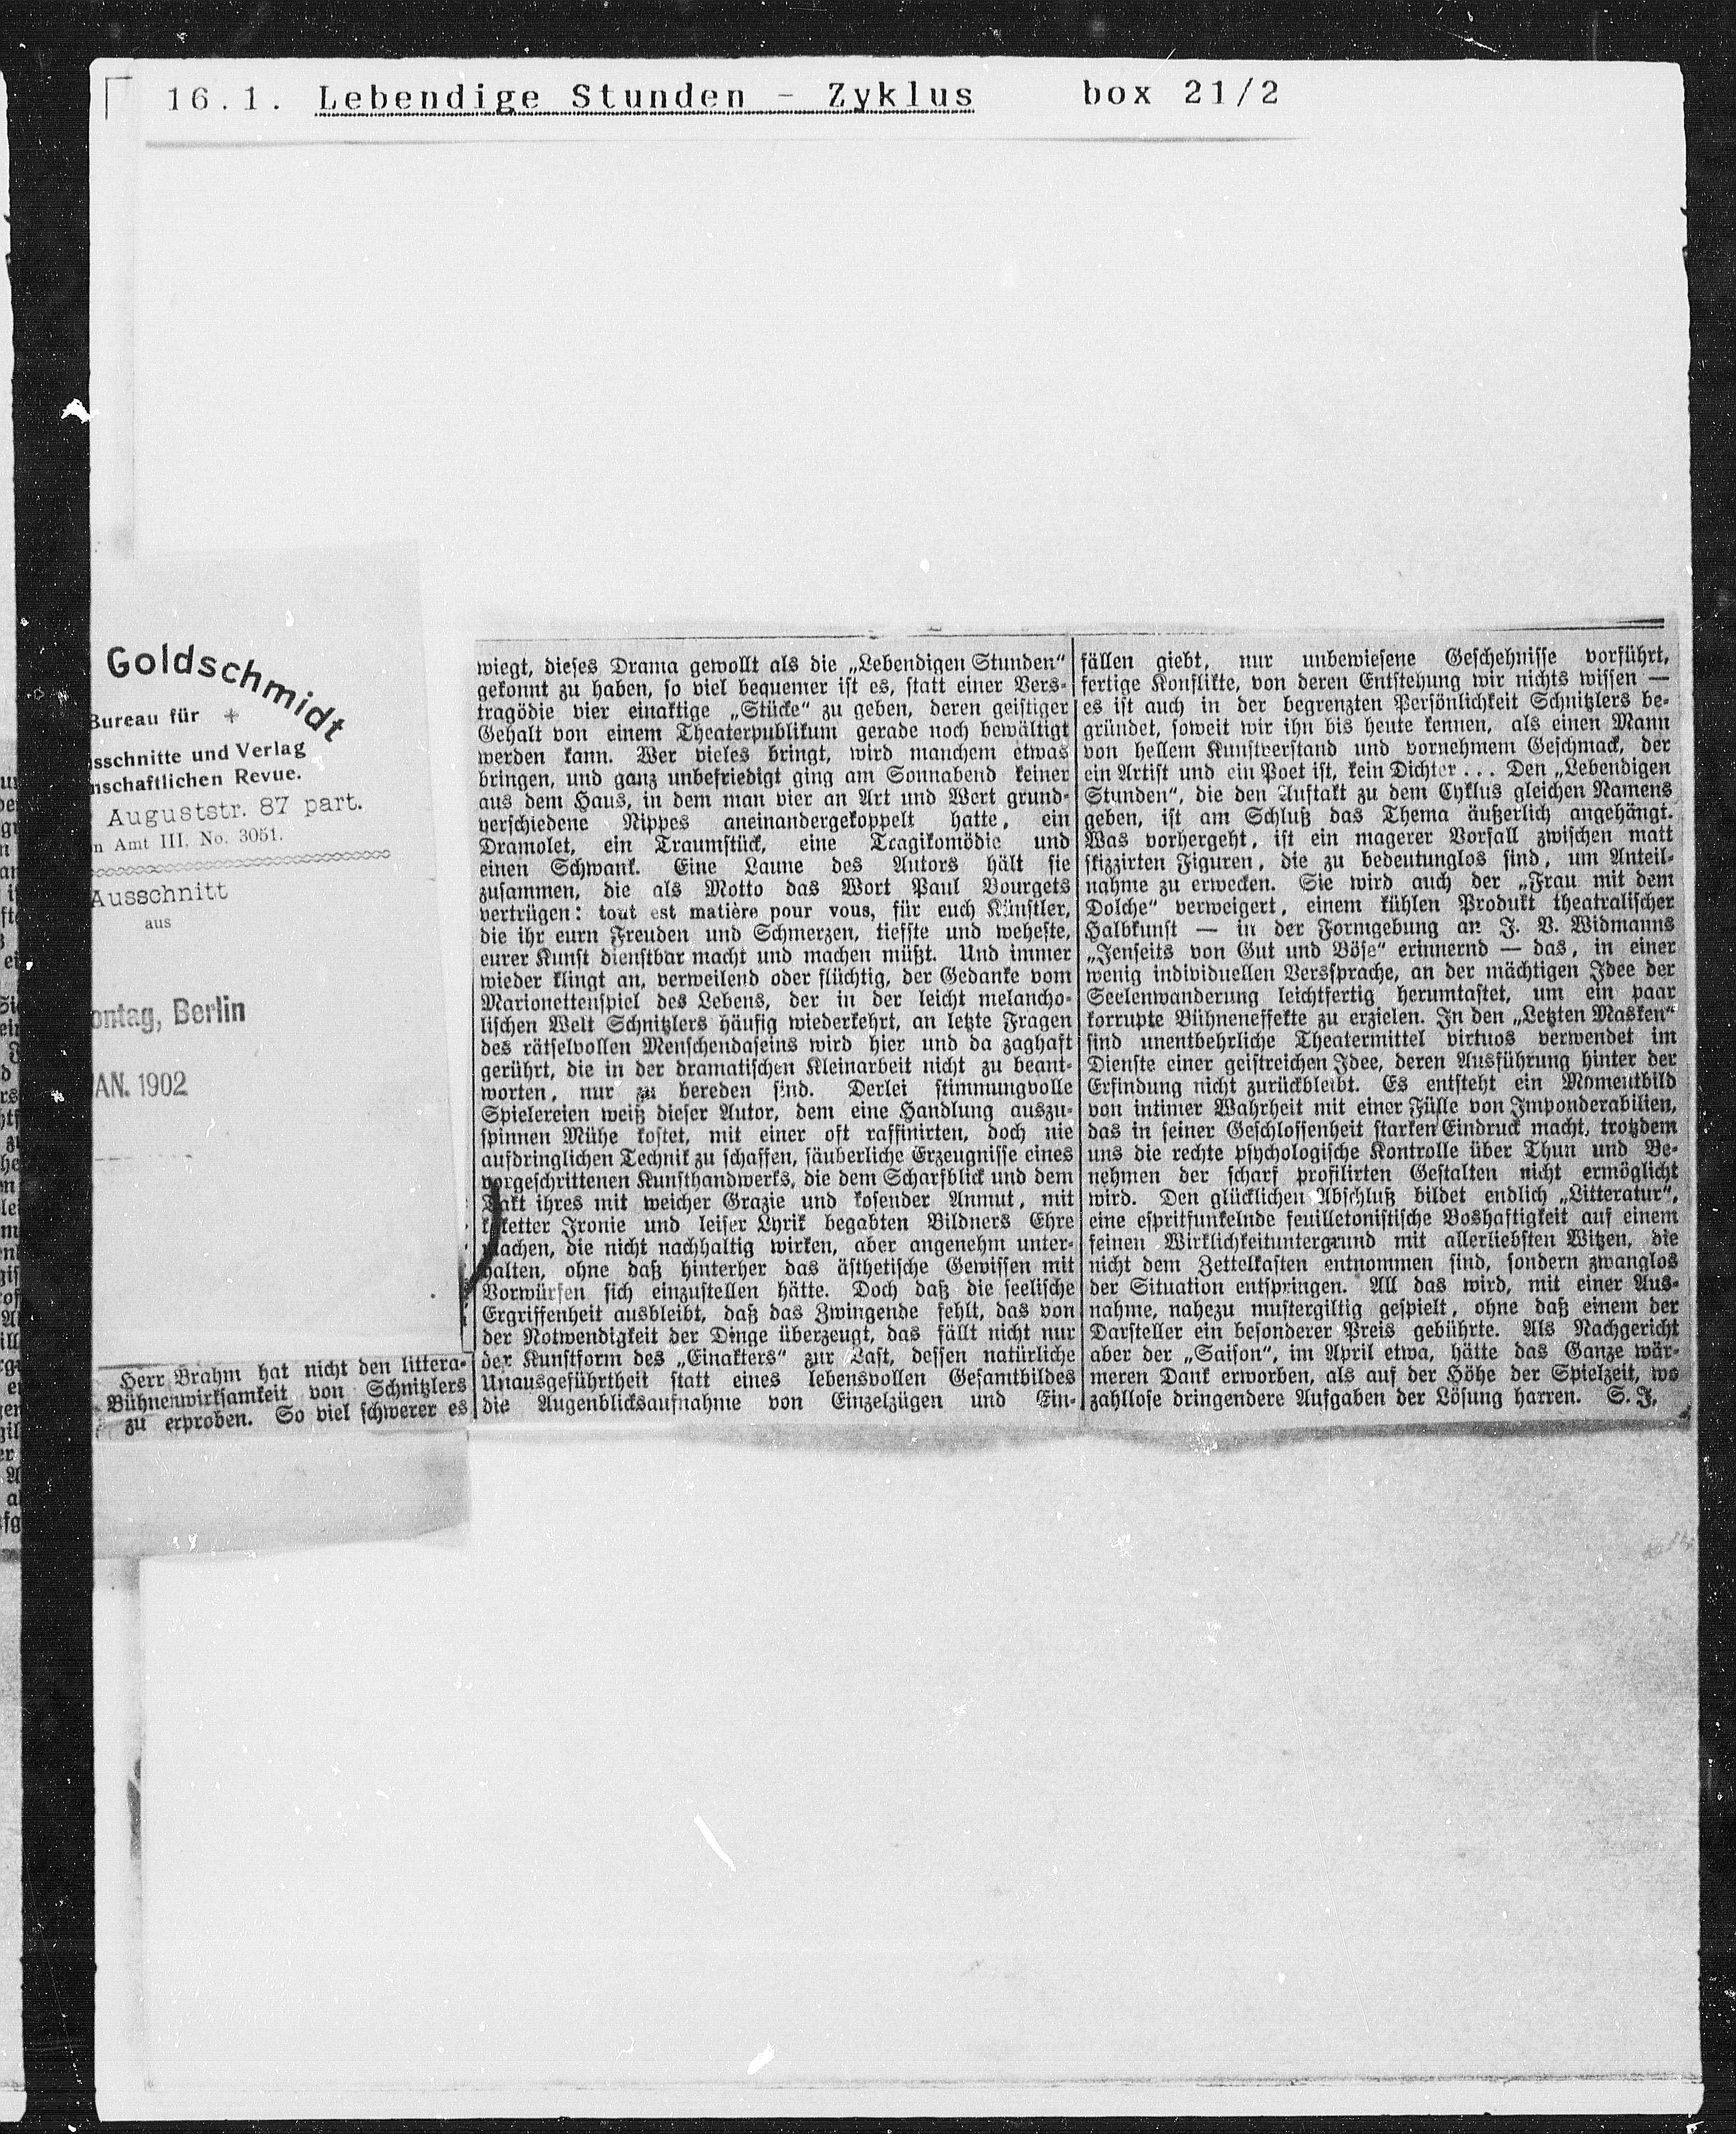 16.1. Lebendige Stunden - Zyklus box 21/2
Goldschmidt
Bureau für
sschnitte und Verlag
nschaftlichen Revue.
Auguststr. 87 part.
n Amt III. No. 3051.
Ausschnitt
aus
ontag, Berlin
AN. 1902
Herr Brahm hat nicht den littera-
Bühnenwirksamkeit von Schnitzlers
zu erproben. So viel schwerer es
wiegt, dieses Drama gewollt als die „Lebendigen Stunden“
gekonnt zu haben, so viel bequemer ist es, statt einer Vers-
tragödie vier einaktige „Stücke“ zu geben, deren geistiger
Gehalt von einem Theaterpublikum gerade noch bewältigt
werden kann. Wer vieles bringt, wird manchem etwas
bringen, und ganz unbefriedigt ging am Sonnabend keiner
aus dem Haus, in dem man vier an Art und Wert grund-
verschiedene Nippes aneinandergekoppelt hatte, ein
Dramolet, ein Traumstück, eine Tragikomödie und
einen Schwank. Eine Laune des Autors hält sie
zusammen, die als Motto das Wort Paul Bourgets
vertrügen: tout est matière pour vous, für euch Künstler,
die ihr eurn Freuden und Schmerzen, tiefste und weheste,
eurer Kunst dienstbar macht und machen müßt. Und immer
wieder klingt an, verweilend oder flüchtig, der Gedanke vom
Marionettenspiel des Lebens, der in der leicht melancho-
lischen Welt Schnitzlers häufig wiederkehrt, an letzte Fragen
des rätselvollen Menschendaseins wird hier und da zaghaft
gerührt, die in der dramatischen Kleinarbeit nicht zu beant-
worten, nur zu bereden sind. Derlei stimmungvolle
Spielereien weiß dieser Autor, dem eine Handlung auszu-
spinnen Mühe kostet, mit einer oft raffinirten, doch nie
aufdringlichen Technik zu schaffen, säuberliche Erzeugnisse eines
vorgeschrittenen Kunsthandwerks, die dem Scharfblick und dem
Takt ihres mit weicher Grazie und kosender Anmut, mit
koketter Ironie und leiser Lyrik begabten Bildners Ehre
machen, die nicht nachhaltig wirken, aber angenehm unter-
halten, ohne daß hinterher das ästhetische Gewissen mit
Vorwürfen sich einzustellen hätte. Doch daß die seelische
Ergriffenheit ausbleibt, daß das Zwingende fehlt, das von
der Notwendigkeit der Dinge überzeugt, das fällt nicht nur
der Kunstform des „Einakters“ zur Last, dessen natürliche
Unausgeführtheit statt eines lebensvollen Gesamtbildes
die Augenblicksaufnahme von Einzelzügen und Ein-
fällen giebt, nur unbewiesene Geschehnisse vorführt,
fertige Konflikte, von deren Entstehung wir nichts wissen —
es ist auch in der begrenzten Persönlichkeit Schnitzlers be-
gründet, soweit wir ihn bis heute kennen, als einen Mann
von hellem Kunstverstand und vornehmem Geschmack, der
ein Artist und ein Poet ist, kein Dichter... Den „Lebendigen
Stunden“, die den Auftakt zu dem Cyklus gleichen Namens
geben, ist am Schluß das Thema äußerlich angehängt.
Was vorhergeht, ist ein magerer Vorfall zwischen matt
skizzirten Figuren, die zu bedeutunglos sind, um Anteil-
nahme zu erwecken. Sie wird auch der „Frau mit dem
Dolche“ verweigert, einem kühlen Produkt theatralischer
Halbkunst — in der Formgebung an J. V. Widmanns
„Jenseits von Gut und Böse“ erinnernd — das, in einer
wenig individuellen Verssprache, an der mächtigen Idee der
Seelenwanderung leichtfertig herumtastet, um ein paar
korrupte Bühneneffekte zu erzielen. In den „Letzten Masken“
sind unentbehrliche Theatermittel virtuos verwendet im
Dienste einer geistreichen Idee, deren Ausführung hinter der
Erfindung nicht zurückbleibt. Es entsteht ein Momentbild
von intimer Wahrheit mit einer Fülle von Imponderabilien,
das in seiner Geschlossenheit starken Eindruck macht, trotzdem
uns die rechte psychologische Kontrolle über Thun und Be-
nehmen der scharf profilirten Gestalten nicht ermöglicht
wird. Den glücklichen Abschluß bildet endlich „Litteratur“,
eine espritfunkelnde feuilletonistische Boshaftigkeit auf einem
feinen Wirklichkeituntergrund mit allerliebsten Witzen, die
nicht dem Zettelkasten entnommen sind, sondern zwanglos
der Situation entspringen. All das wird, mit einer Aus-
nahme, nahezu mustergiltig gespielt, ohne daß einem der
Darsteller ein besonderer Preis gebührte. Als Nachgericht
aber der „Saison“, im April etwa, hätte das Ganze wär-
meren Dank erworben, als auf der Höhe der Spielzeit, wo
zahllose dringendere Aufgaben der Lösung harren. S. J.